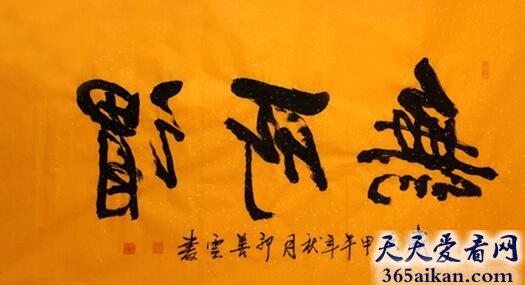 無所謂
甲午年秋月 善雲
天天爱看网
365aikan.com